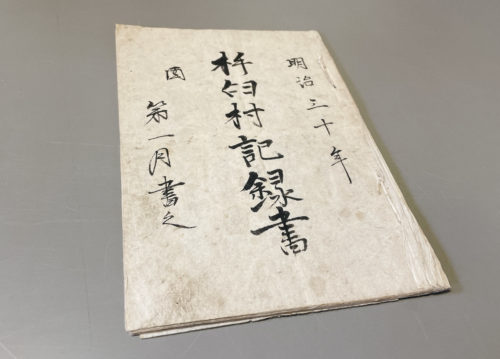 明治三十年
杵臼村記録書
第一月書之